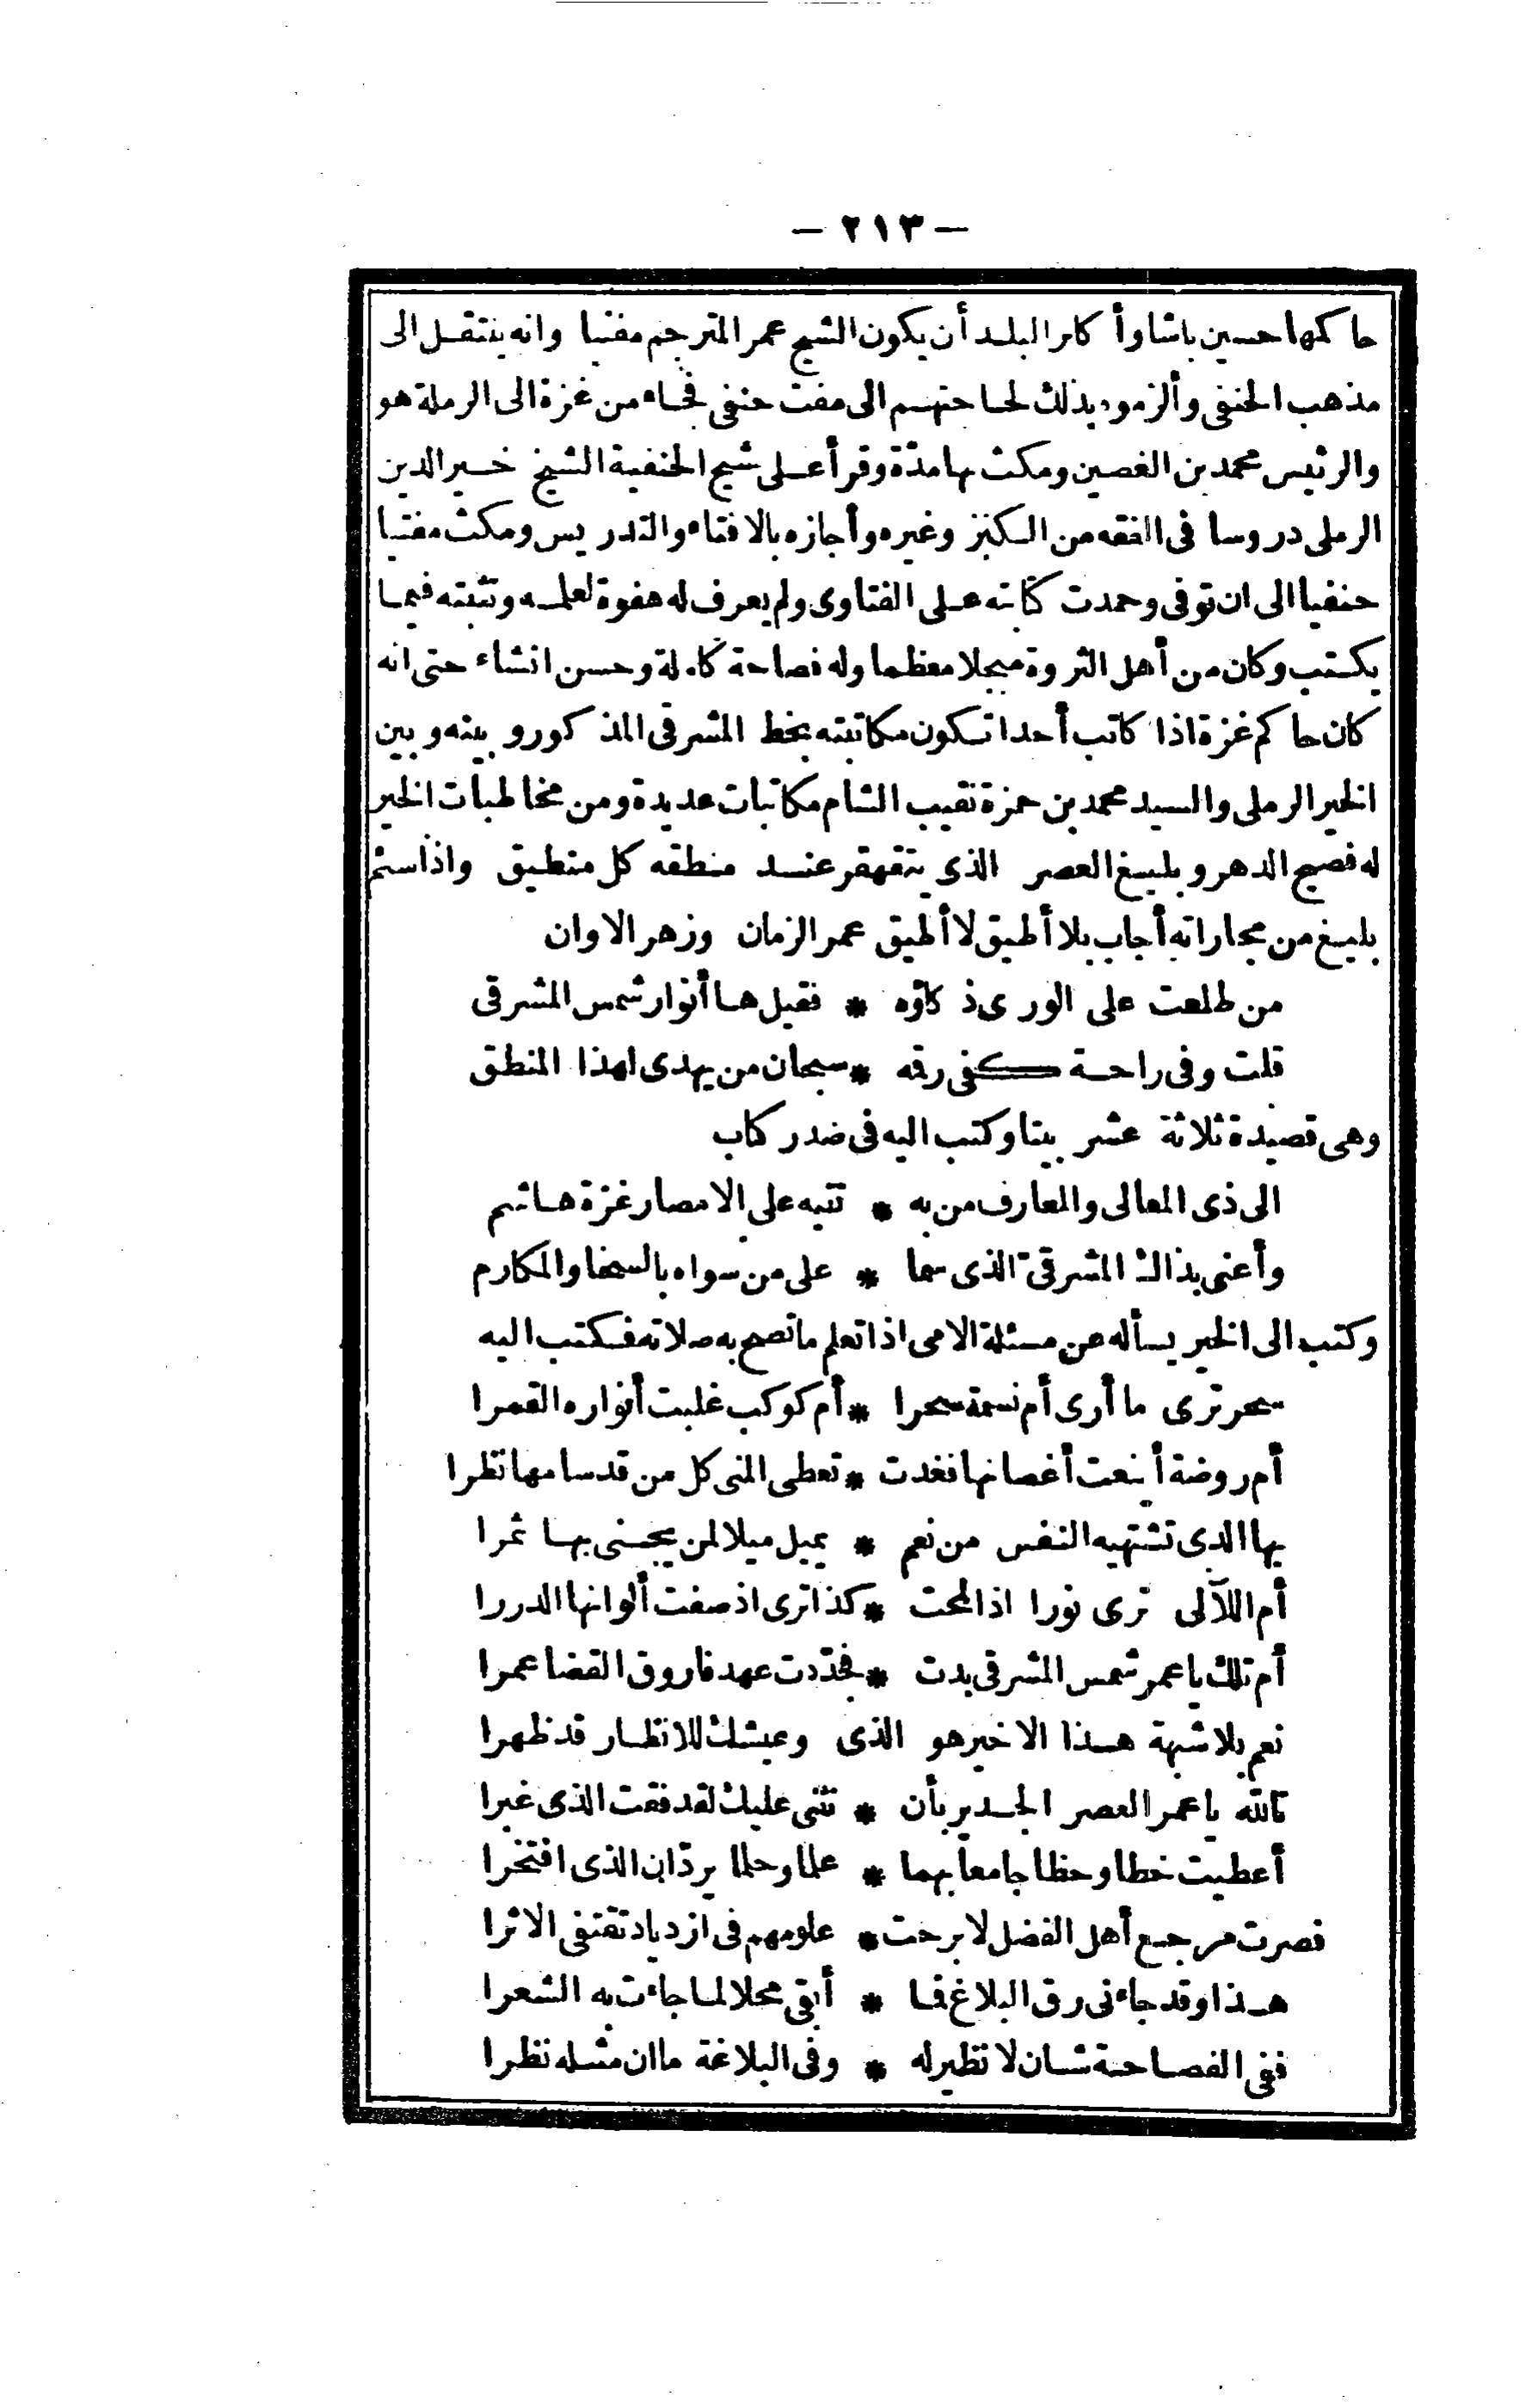 — ٢١٣ —
حاكمها حسين باشا وأكابر البلد أن يكون الشيخ عمر المترجم مفتيا وانه ينتقل الى
مذهب الحنفى وألزموه بذلك لحاجتهم الى مفت حنفى فجاء من غزة الى الرملة هو
والرئيس محمد بن الغصين ومكث بها مدّة وقرأ على شيخ الحنفية الشيخ خير الدين
الرملى دروسا فى الفقه من الكنز وغيره وأجازه بالافتاء والتدريس ومكث مفتيا
حنفيا الى ان توفى وحمدت كتابته على الفتاوى ولم يعرف له هفوة لعلمه وتثبته فيما
يكتب وكان من أهل الثروة مبجلا معظما وله فصاحة كاملة وحسن انشاء حتى انه
كان حاكم غزة اذا كاتب أحدا تكون مكاتبته بخط المشرقى المذكور وبينه وبين
الخير الرملى والسيد محمد بن حمزة نقيب الشام مكاتبات عديدة ومن مخاطبات الخير
له فصيح الدهر وبليغ العصر الذى يتقهقر عند منطقه كل منطيق واذا سئم
بليغ من مجاراته أجاب بلا أطيق لا أطيق عمر الزمان وزهر الاوان
من طلعت على الورى ذكاؤه * فقيل ها أنوار شمس المشرقى
قلت وفى راحة كفى رقه * سبحان من يهدى لهذا المنطق
وهى قصيدة ثلاثة عشر بيتا وكتب اليه فى صدر كتاب
الى ذى المعالى والمعارف من به * تتيه على الامصار غزة هاشم
وأعنى بذاك المشرقىّ الذى سما * على من سواه بالسخا والمكارم
وكتب الى الخير يسأله عن مسئلة الامى اذا تعلم ما تصح به صلاته فكتب اليه
سحر ترى ما أرى أم نسمة سحرا * أم كوكب غلبت أنواره القمرا
أم روضة أينعت أغصانها فغدت * تعطى المنى كل من قد سامها نظرا
بها الذى تشتهيه النفس من نعم * يميل ميلا لمن يجنى بها ثمرا
أم اللآلى ترى نورا اذا لمحت * كذا ترى اذ صفت ألوانها الدررا
أم تلك يا عمر شمس المشرقى بدت * فجدّدت عهد فاروق القضا عمرا
نعم بلا شبهة هذا الاخير هو الذى وعيشك للانظار قد ظهرا
تالله يا عمر العصر الجدير بأن * نثنى عليك لقد فقت الذى غبرا
أعطيت خطا وحظا جامعا بهما * علما وحلما يردّان الذى افتخرا
فصرت مرجع أهل الفضل لا برحت * علومهم فى ازدياد تقتفى الاثرا
هذا وقد جاءنى رق البلاغ فما * أبقى محلا لما جاءت به الشعرا
ففى الفصاحة شان لا نظير له * وفى البلاغة ما ان مثله نظرا